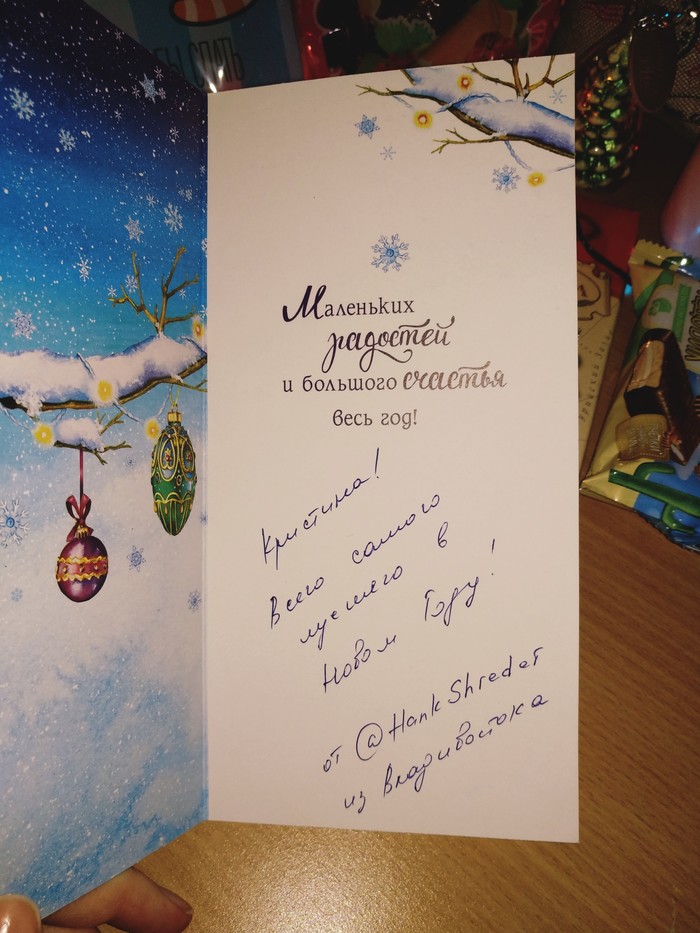 БЫ СПАТЬ
Маленьких
радостей
и большого счастья
весь год!
Кристина!
Всего самого
лучшего в
Новом Году!
от @HankShreder
из Владивостока